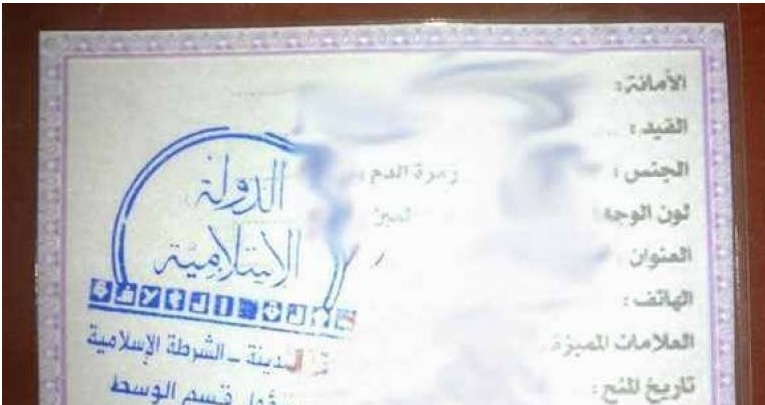 الأمانة:
القيد:
الجنس: زمرة الدم:
لون الوجه:
العنوان
الهاتف:
العلامات المميزة
تاريخ المنح:
الدولة
الإسلامية
المدينة - الشرطة الإسلامية
قسم الوسط